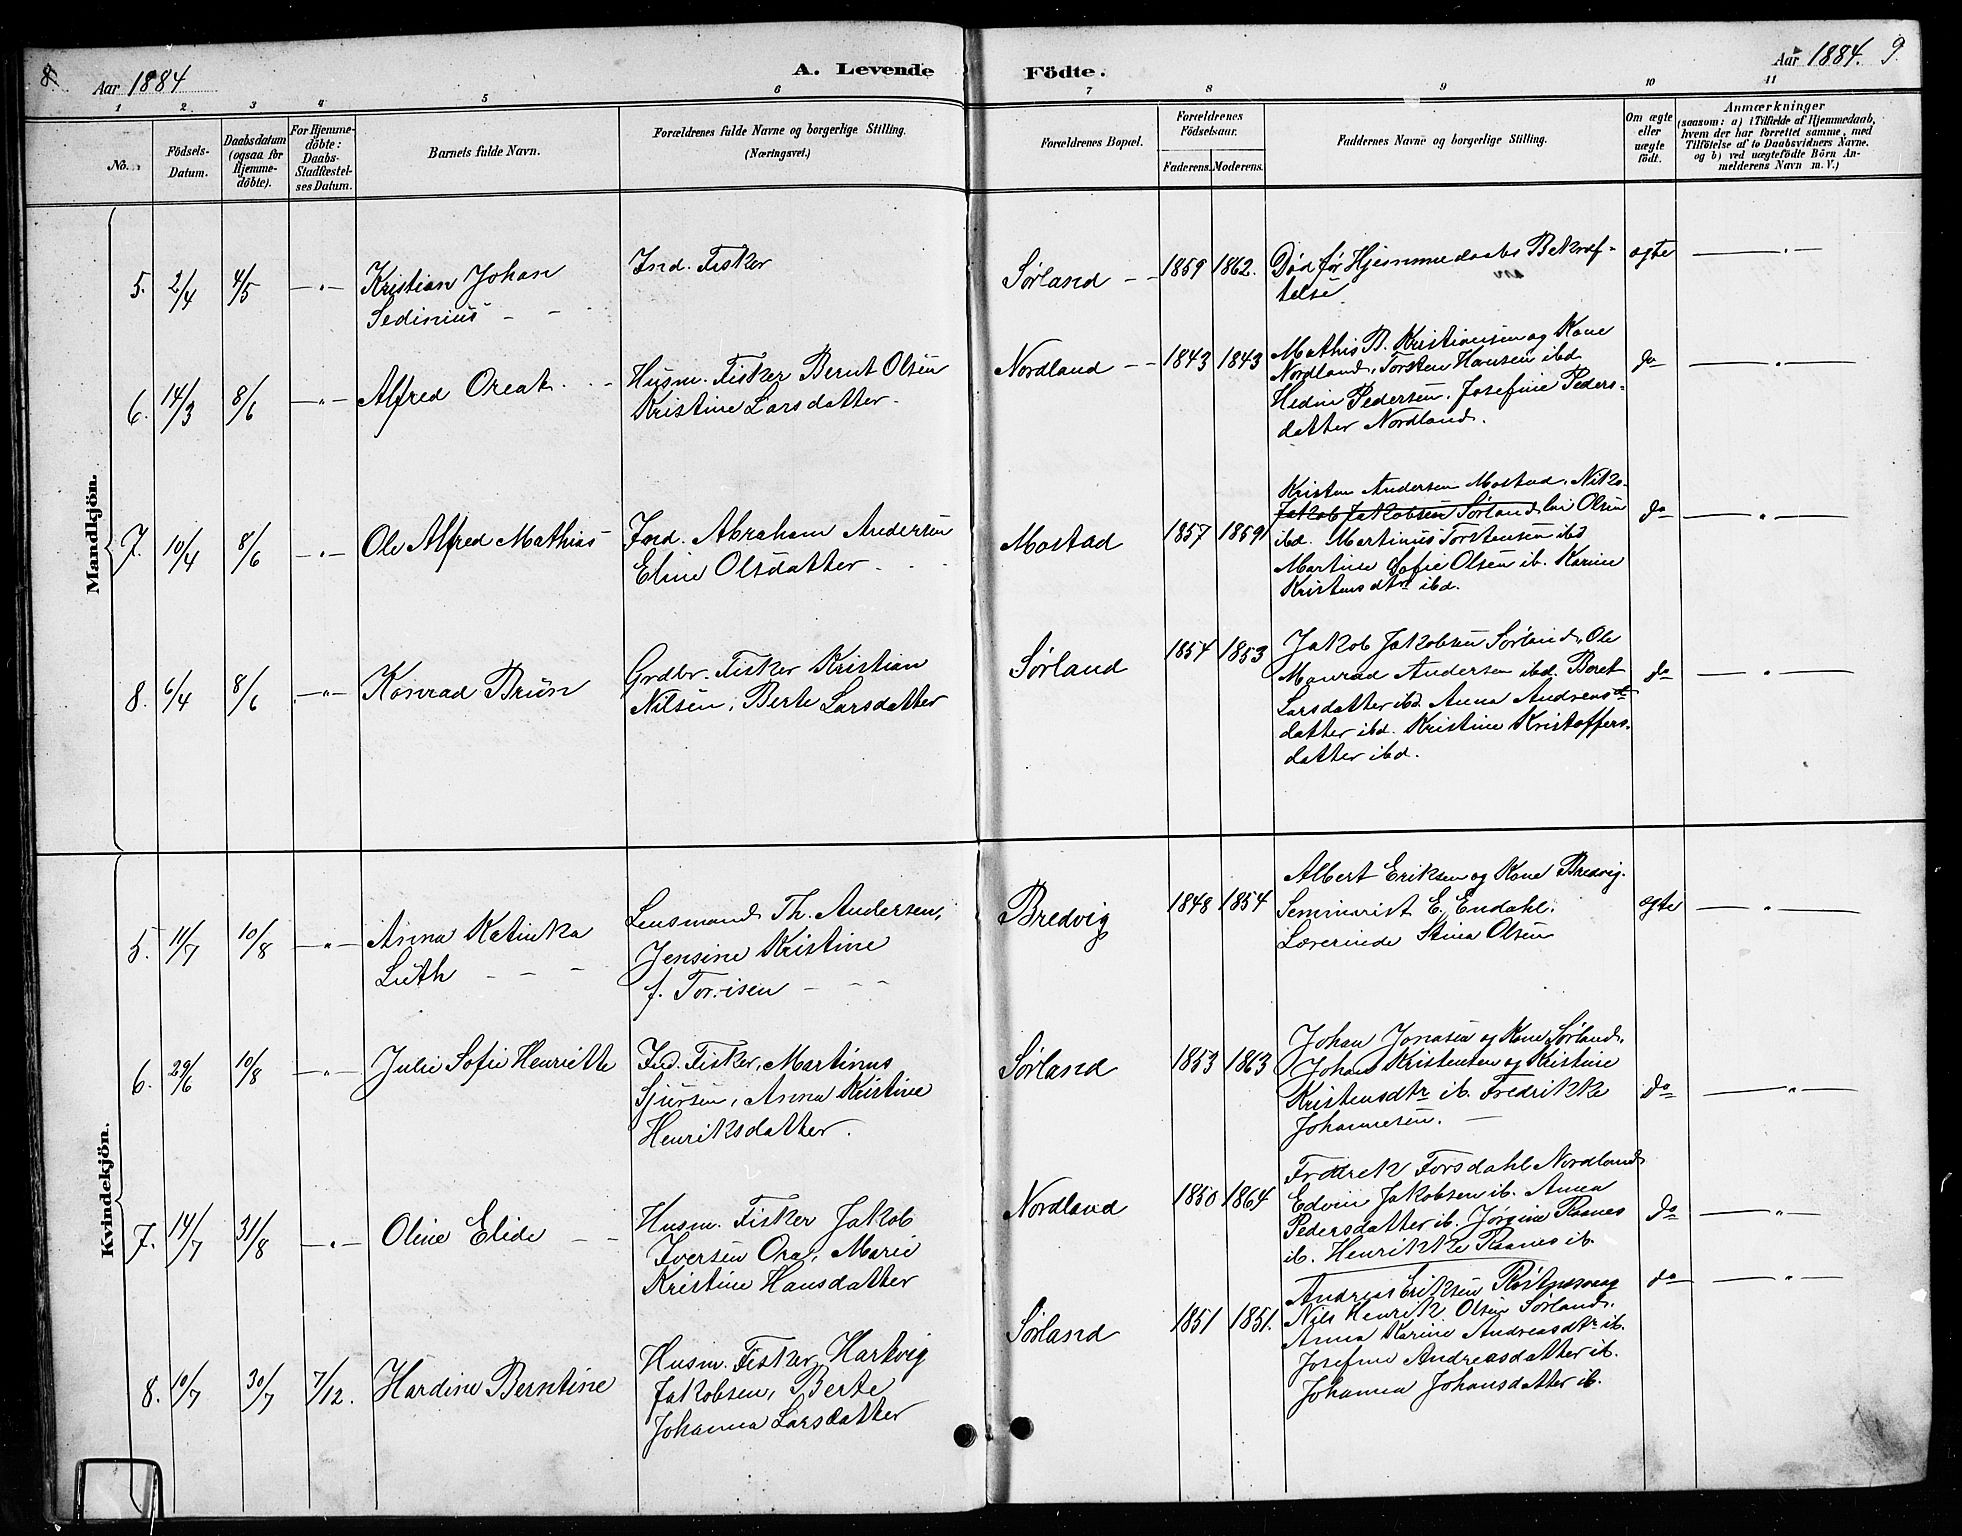 8.
Aar 1884
A. Levende Födte.
Aar 1884. 9.
1 2. 3 4 5 6 7 8 9 10 11
No.
Födsels-Datum.
Daabsdatum (ogsaa for Hjemme-döbte).
For Hjemme-döbte: Daabs-Stadfæstel-ses Datum.
Barnets fulde Navn.
Forældrenes fulde Navne og borgerlige Stilling.
(Næringsvei.)
Forældrenes Bopæl.
Forældrenes Födselsaar.
Faderens. Moderens.
Faddernes Navne og borgerlige Stilling.
Om ægte eller uægte födt.
Anmærkninger
(saasom: a) i Tilfælde af Hjemmedaab,
hvem der har forrettet samme, med
Tilföielse af to Daabsvidners Navne.
og b) ved uægtefödte Börn An-
melderens Navn m. V.)
Mandkjön.
5. 2/4 4/5 —„— Kristian Johan
Sedinius - -
Ind. Fisker
Sørland - - 1859 1862. Død før Hjemmedaabs Bekræf-
telse.
ægte —„—
6. 14/3 8/6 —„— Alfred Oreat
Husm. Fisker Bernt Olsen
Kristine Larsdatter.
Nordland - - 1843 1843 Mathis B. Kristiansen og Kone
Nordland, Torsten Hansen ibd
Hedvi Pedersen, Josefine Peders-
datter Nordland.
do —„—
7. 10/4 8/6 —„— Ole Alfred Mathias
Ind. Abraham Andersen
Eline Olsdatter
Mostad 1857 1859 Kristen Andersen Mostad, Niko-
Jakob Jakobsen Sørland lai Olsen
ibd. Martinus Torstensen ibd
Martine Sofie Olsen ib. Karine
Kristensdtr ibd.
do —„—
8. 6/4 8/6 —„— Konrad Brün
Grdbr. Fisker Kristian
Nilsen, Berte Larsdatter
Sørland 1854 1853 Jakob Jakobsen Sørland, Ole
Monrad Andersen ibd. Beret
Larsdatter ibd. Anna Andreas
datter ibd. Kristine Kristoffers-
datter ibd.
do —„—
Kvindekjön.
5. 11/7 10/8 —„— Anna Katinka
Luth - - -
Lensmand Th. Andersen,
Jensine Kristine
f. Torrisen - - -
Bredvig 1848 1854 Albert Eriksen og Kone Bredvig.
Seminarist E. Endahl.
Lærerinde Stina Olsen
ægte —„—
6. 29/6 10/8 —„— Julie Sofie Henriette
Ind. Fisker, Martinus
Sjursen, Anna Kristine
Henriksdatter.
Sørland 1853 1863 Johan Jonasen og Kone Sørland,
Johan Kristensen og Kristine
Kristensdtr ib. Fredrikke
Johannesen. —
do —„—
7. 14/7 31/8 —„— Oline Elide - -
Husm. Fisker Jakob
Iversen Ora, Marie
Kristine Hansdatter
Nordland 1850 1864 Fredrek Forsdahl Nordland
Edvin Jakobsen ib. Anna
Pedersdatter ib. Jørgine Raanes
ib. Henrikke Raanes ib.
do —„—
8. 10/7 30/7 7/12. Hardine Berntine
Husm. Fisker Hartvig
Jakobsen, Berte
Johanna Larsdatter
Sørland 1851 1851. Andreas Eriksen Røstnesvaag
Nils Henrik Olsen Sørland,
Anna Karine Andreasdtr ib.
Josefine Andreasdatter ib.
Johanna Johansdatter ib.
do —„—